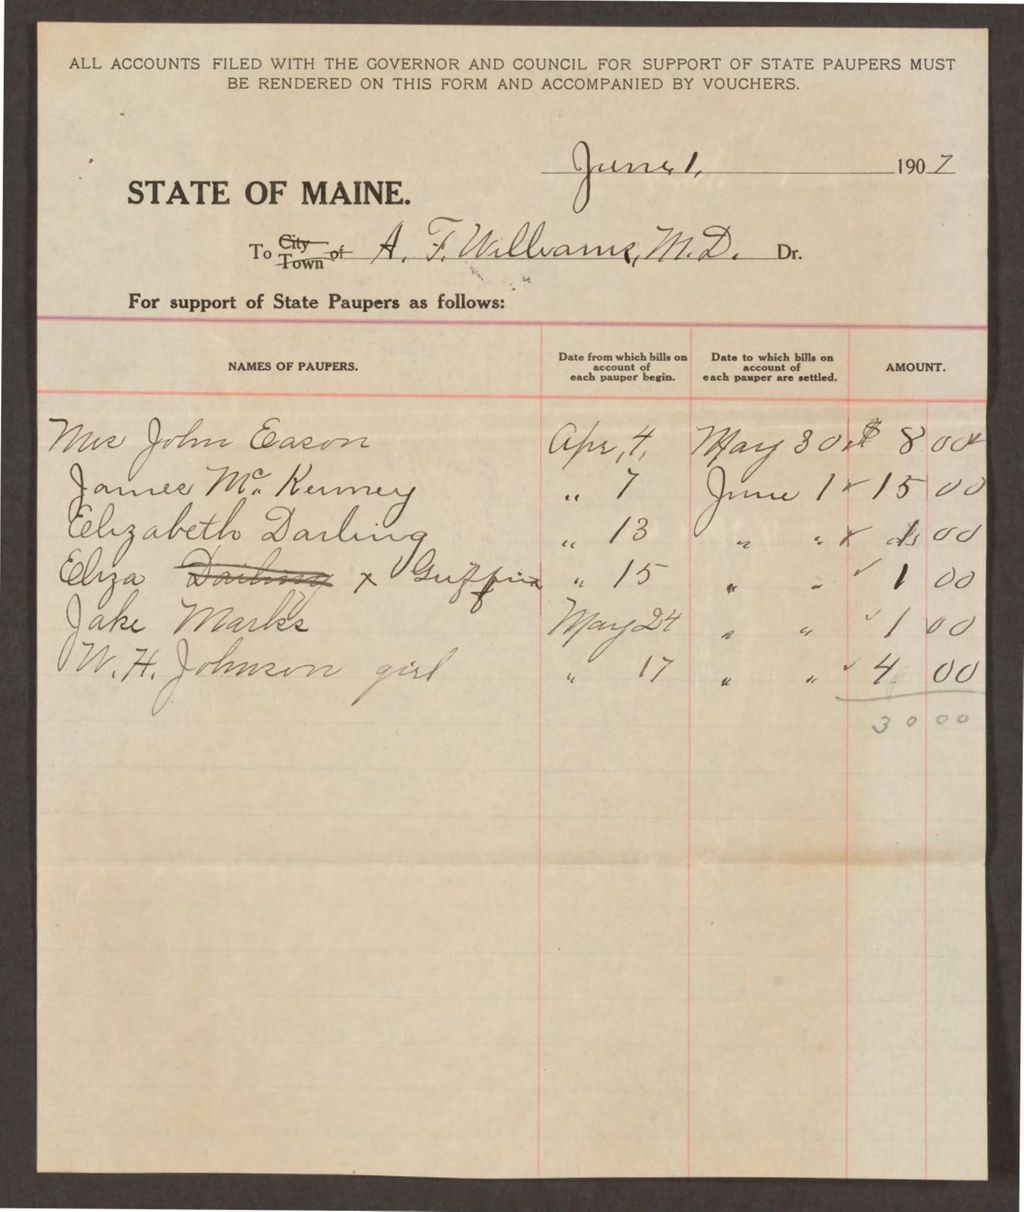 ALL ACCOUNTS FILED WITH THE GOVERNOR AND COUNCIL FOR SUPPORT OF STATE PAUPERS MUST
BE RENDERED ON THIS FORM AND ACCOMPANIED BY VOUCHERS.
June 1, 1907
STATE OF MAINE.
To City Town of A. F. Williams, M.D. Dr.
For support of State Paupers as follows:
NAMES OF PAUPERS. Date from which bills on account of each pauper begin. Date to which bills on account of each pauper are settled. AMOUNT.
Mrs John Eason Apr, 4, May 30 $ 8 00
James Mc. Kenney " 7 June 1 15 00
Elizabeth Darling " 13 " " 1 00
Eliza Darling x Guffin " 15 " " 1 00
Jake Marks May 24 " " 1 00
W. H. Johnson girl " 17 " " 4 00
30 00